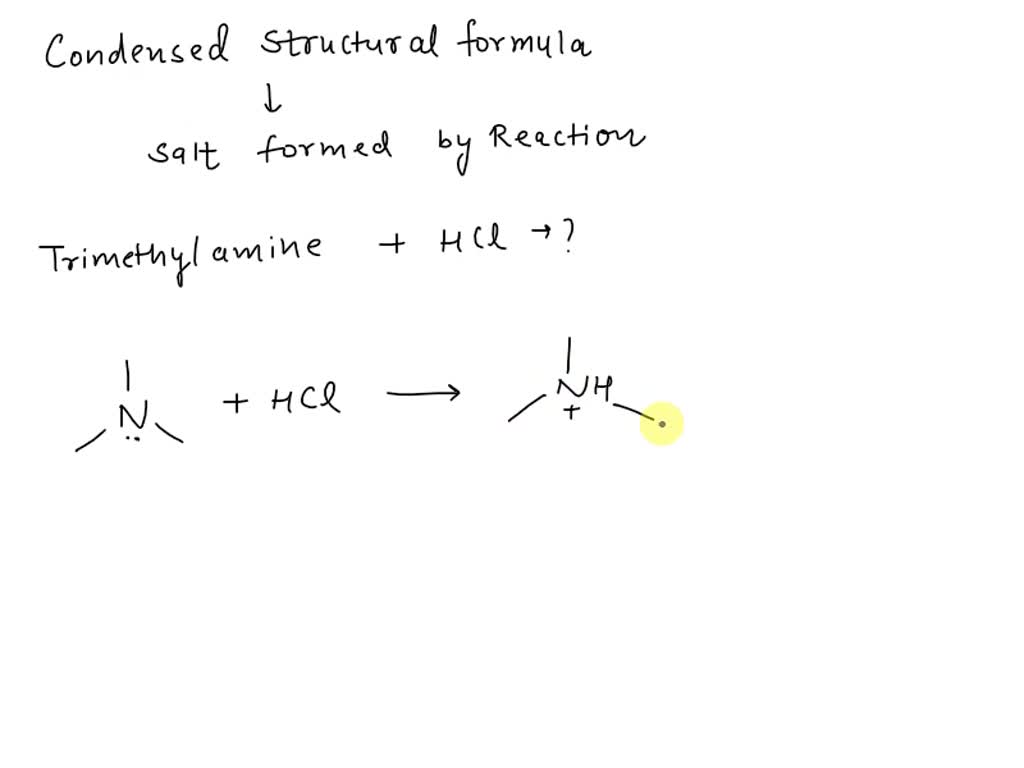 Condensed Structural formula
↓
Salt formed by Reaction
Trimethylamine + HCl → ?
N + HCl → NH
+